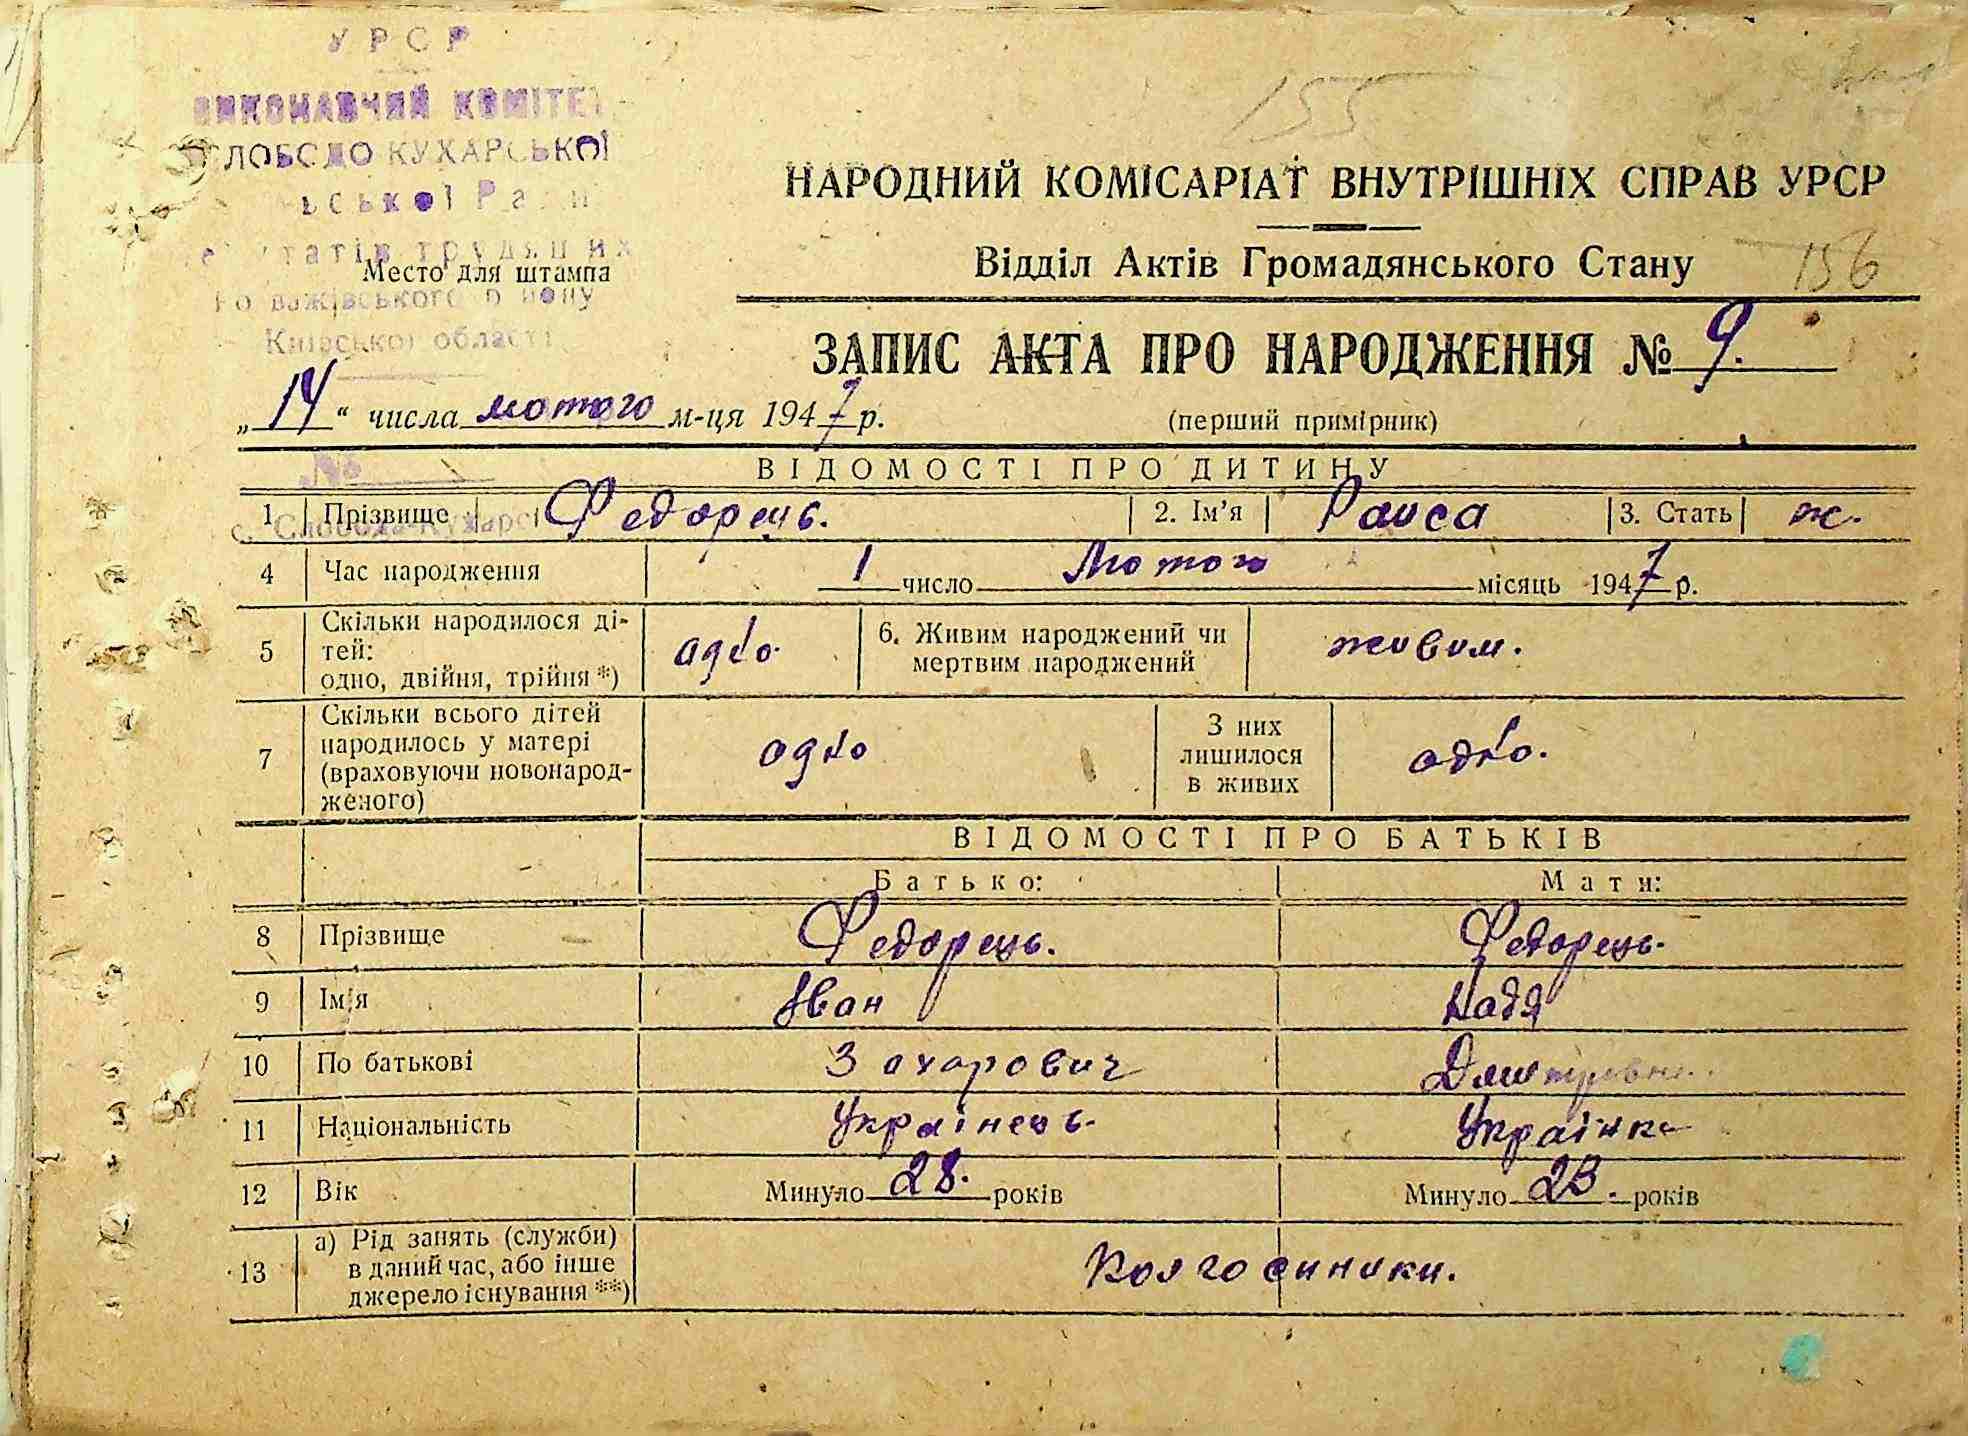 УРСР
ВИКОНАВЧИЙ КОМІТЕТ
СЛОБОДО КУХАРСЬКОЇ
ської Ради
трудящих
Київської області
Место для штампа
155
НАРОДНИЙ КОМІСАРІАТ ВНУТРІШНІХ СПРАВ УРСР
Відділ Актів Громадянського Стану
156
ЗАПИС АКТА ПРО НАРОДЖЕННЯ № 9.
„14“ числа лютого м-ця 1947 р.
(перший примірник)
№
ВІДОМОСТІ ПРО ДИТИНУ
с. Слобода-Кухарс
1 Прізвище Федорець. 2. Ім'я Раиса 3. Стать ж.
4 Час народження 1 число Лютого місяць 1947 р.
5 Скільки народилося ді-
тей:
одно, двійня, трійня *) одно.
6. Живим народжений чи
мертвим народжений живим.
7 Скільки всього дітей
народилось у матері
(враховуючи новонарод-
женого) одно
З них
лишилося
в живих одно.
ВІДОМОСТІ ПРО БАТЬКІВ
Батько: Мати:
8 Прізвище Федорець. Федорець.
9 Ім'я Іван Надя
10 По батькові Захарович Дмитровна
11 Національність Українець. Українка
12 Вік Минуло 28. років Минуло 23. років
13 а) Рід занять (служби)
в даний час, або інше
джерело існування **) Колгоспники.